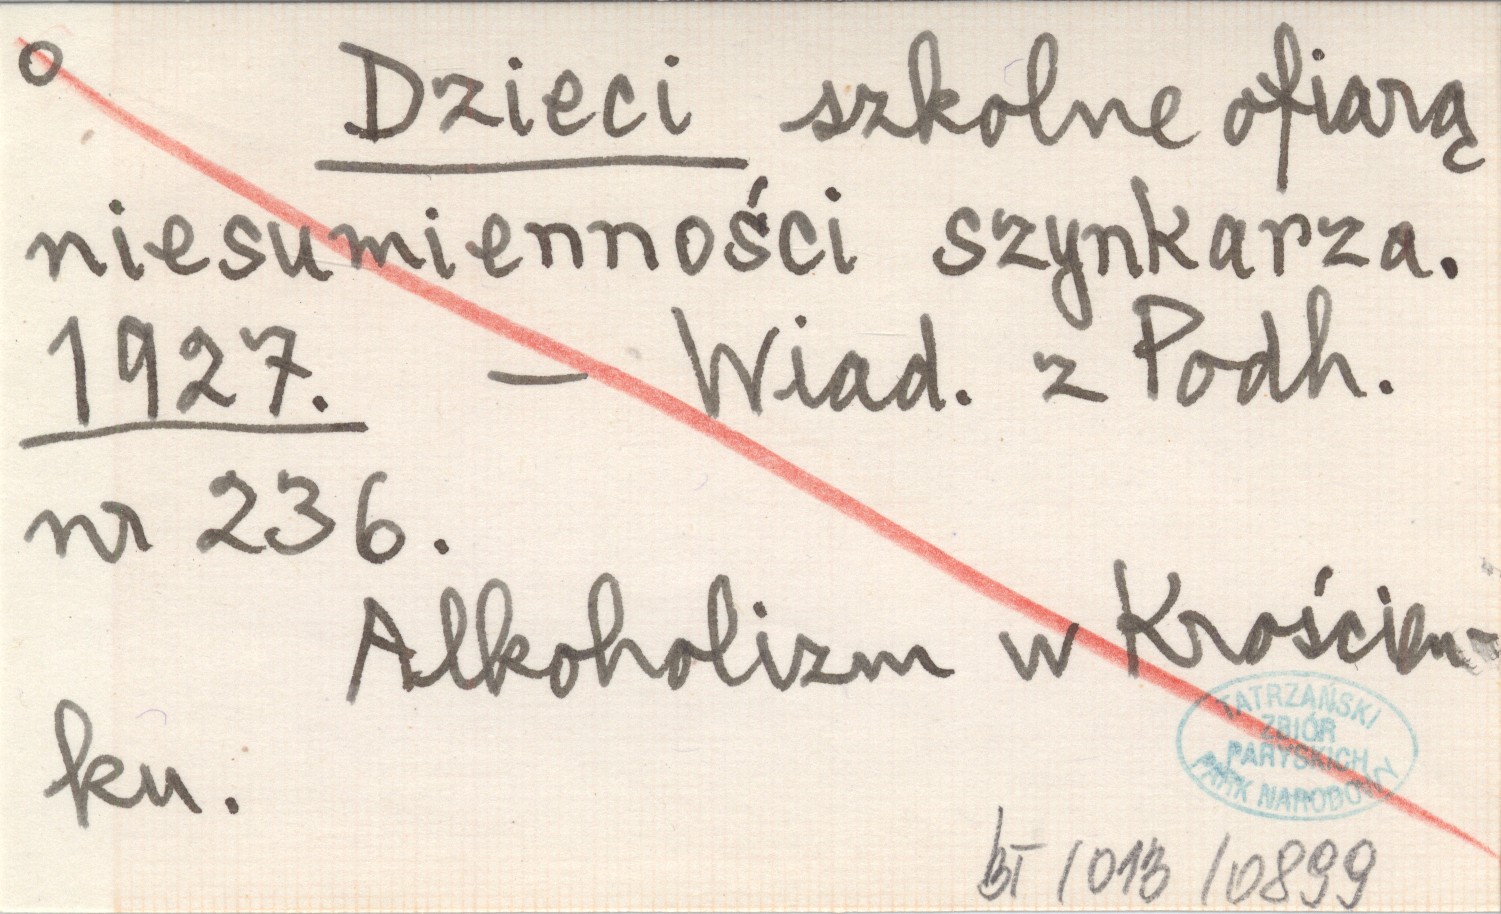 o Dzieci szkolne ofiarą
niesumienności szynkarza.
1927. – Wiad. z Podh.
nr 236.
Alkoholizm w Krościen-
ku.
TATRZAŃSKI
ZBIÓR
PARYSKICH
PARK NARODOWY
BT / 013 / 0899